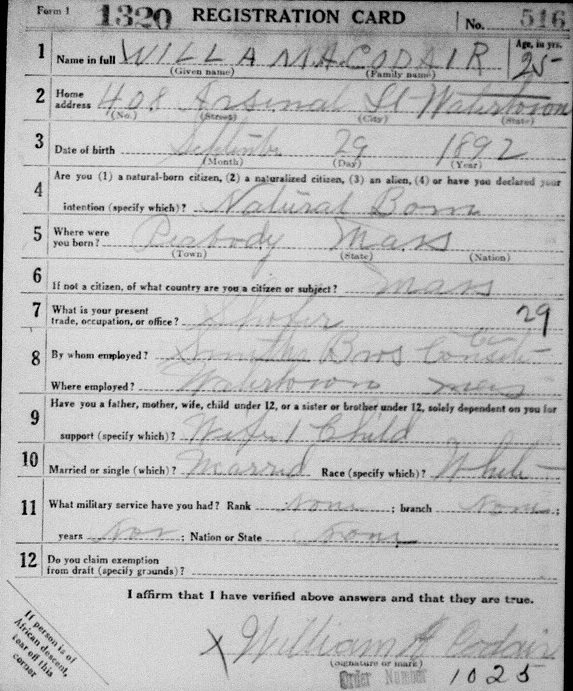 Form 1 1320 REGISTRATION CARD No. 516
1 Name in full WILLAM A. CODAIR Age, in yrs. 25
(Given name) (Family name)
2 Home address 408 Arsenal St Watertown
(No.) (Street) (City) (State)
3 Date of birth September 29 1892
(Month) (Day) (Year)
4 Are you (1) a natural-born citizen, (2) a naturalized citizen, (3) an alien, (4) or have you declared your
intention (specify which)? Natural Born
5 Where were you born? Peabody Mass
(Town) (State) (Nation)
6 If not a citizen, of what country are you a citizen or subject? Mass
7 What is your present trade, occupation, or office? Shofer 29
8 By whom employed? Bros
Where employed? Watertown Mass
9 Have you a father, mother, wife, child under 12, or a sister or brother under 12, solely dependent on you for
support (specify which)? Wife 1 Child
10 Married or single (which)? Married Race (specify which)? White
11 What military service have you had? Rank None ; branch None ;
years Non ; Nation or State None
12 Do you claim exemption from draft (specify grounds)?
I affirm that I have verified above answers and that they are true.
If person is of
African descent,
tear off this
corner
X William A Codair
(signature or mark)
Order Number 1025